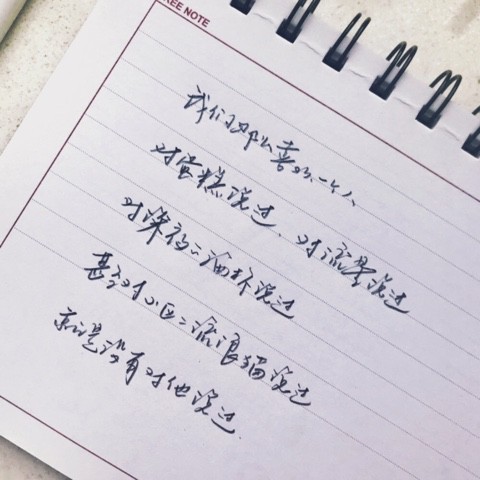 REE NOTE
我们那么喜欢一个人
对蛋糕说过、对流星说过
对深夜的酒杯说过
甚至对小区的流浪猫说过
就是没有对他说过.